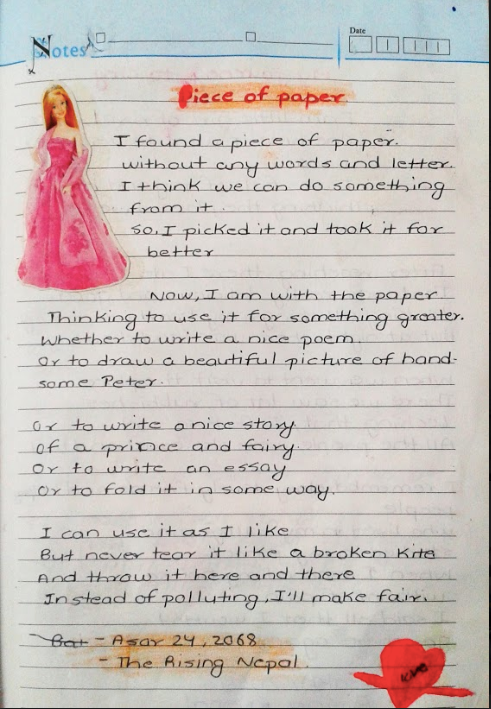 Notes
Date
Piece of paper
I found a piece of paper.
without any words and letter.
I think we can do something
from it.
So, I picked it and took it for
better
Now, I am with the paper
Thinking to use it for something greater.
Whether to write a nice poem.
Or to draw a beautiful picture of hand-
some Peter.
Or to write a nice story
of a prince and fairy.
Or to write an essay
Or to fold it in some way.
I can use it as I like
But never tear it like a broken kite
And throw it here and there
Instead of polluting, I'll make fair.
- Asar 24, 2068
- The Rising Nepal.